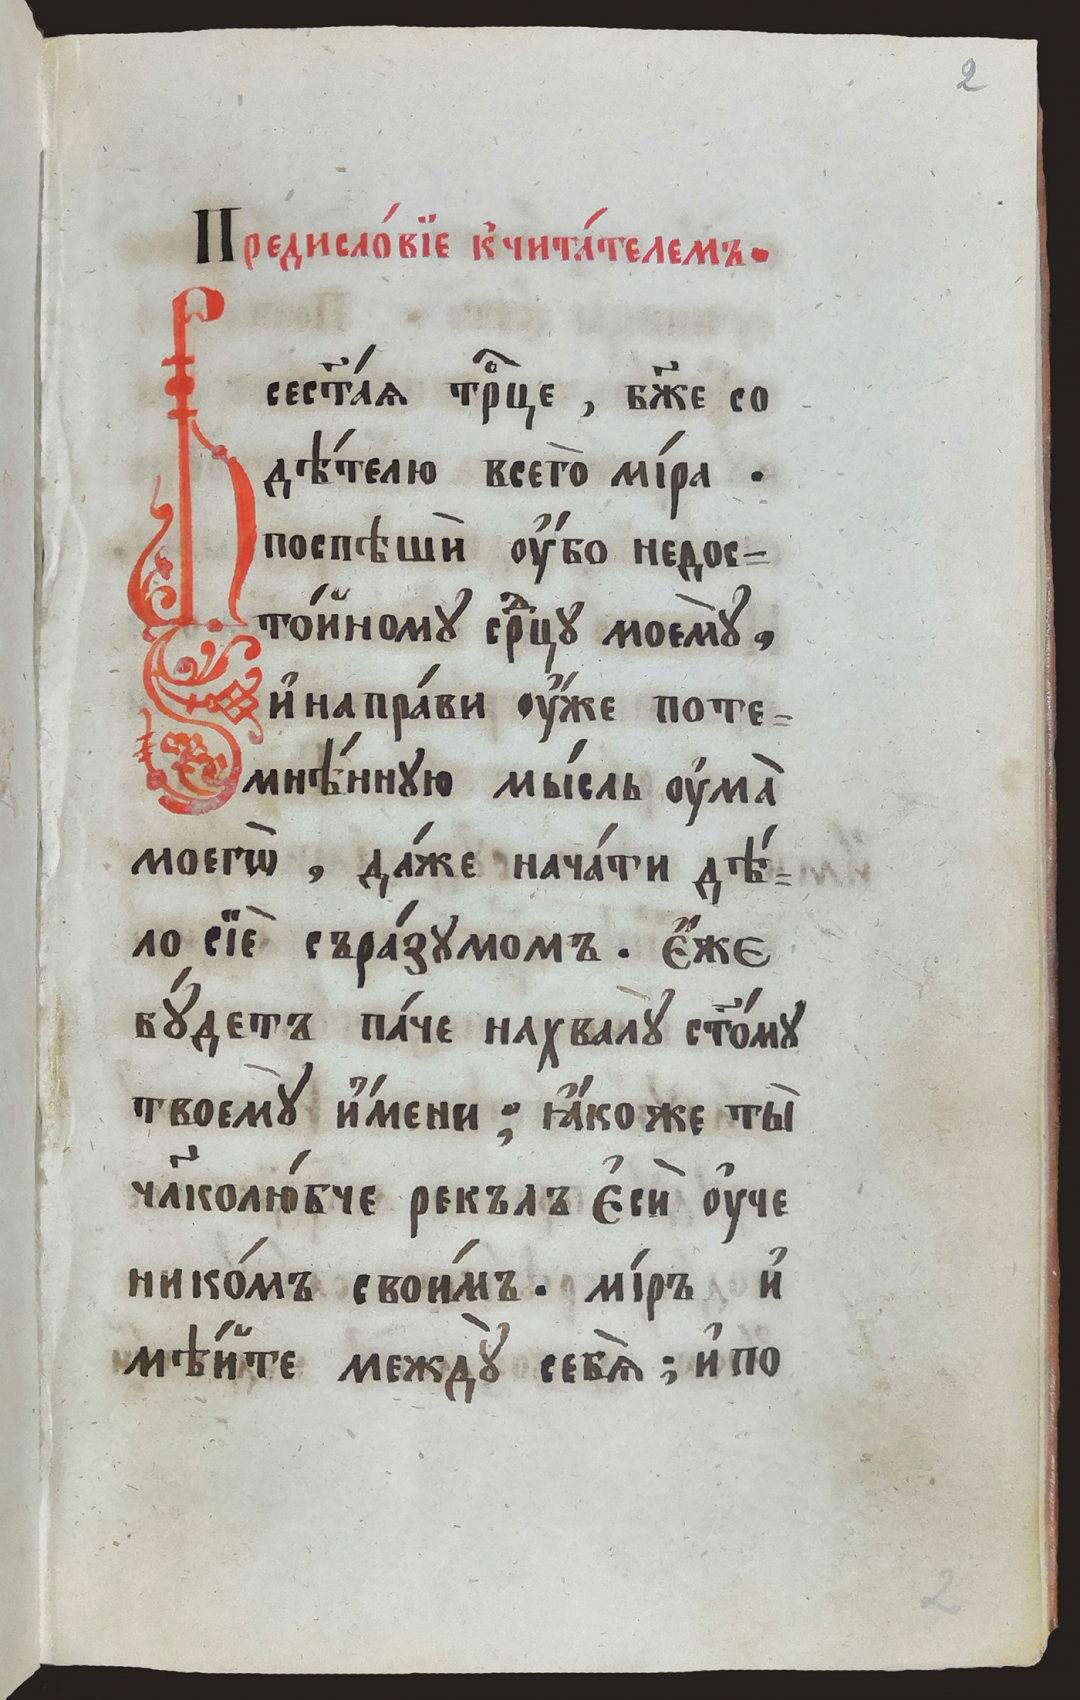 2
Предисло́вїе к̾чита́телемъ.
Всест҃а́я трⷪ҇це, бж҃е со
дѣ́телю всего̀ мі́ра .
поспѣшѝ ᲂу҆́бо недос=
то́йномꙋ срⷣцꙋ моемꙋ̀,
и҆ напра́ви ᲂу҆́же поте=
мнѣ́ннꙋю мы́сль ᲂу҆ма̀
моегѡ̀, да́же нача́ти дѣ́=
ло сїѐ съра́зꙋмомъ . Є҆́же
бꙋ́детъ па́че нахвалꙋ̀ ст҃о́мꙋ
твоемꙋ̀ и҆́мени ; ꙗ҆́коже ты̀
чл҃колю́бче рекълъ є҆сѝ ᲂу҆че
нико́мъ свои́мъ . мі́ръ и҆
мѣ́йте междꙋ̀ себѧ̀ ; и҆ по
2